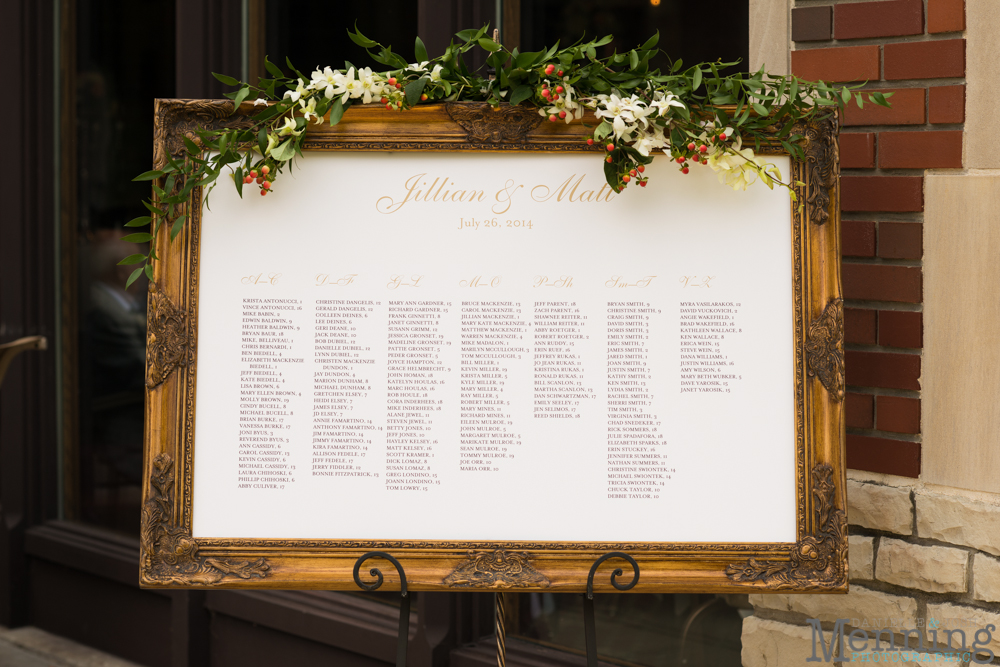 Jillian & Matt
July 26, 2014
A—C
KRISTA ANTONUCCI, 1
VINCE ANTONUCCI, 16
MIKE BABIN, 2
EDWIN BALDWIN, 9
HEATHER BALDWIN, 9
BRYAN BAUR, 12
MIKE, BELLIVEAU, 1
CHRIS BERNARDI, 1
BEN BIEDELL, 4
ELIZABETH MACKENZIE
BIEDELL, 1
JEFF BIEDELL, 4
KATE BIEDELL, 4
LISA BROWN, 4
MARY ELLEN BROWN, 4
MOLLY BROWN, 19
CINDY BUCELL, 8
MICHAEL BUCELL, 8
BRIAN BURKE, 17
VANESSA BURKE, 17
JONI BYUS, 3
REVEREND BYUS, 3
ANN CASSIDY, 6
CAROL CASSIDY, 13
KEVIN CASSIDY, 6
MICHAEL CASSIDY, 13
LAURA CHIHOSKI, 6
PHILLIP CHIHOSKI, 6
ABBY CULIVER, 17
D—F
CHRISTINE DANGELIS, 12
GERALD DANGELIS, 12
COLLEEN DEINES, 6
LEE DEINES, 6
GERI DEANE, 10
JACK DEANE, 10
BOB DUBIEL, 12
DANIELLE DUBIEL, 12
LYNN DUBIEL, 12
CHRISTEN MACKENZIE
DUNDON, 1
JAY DUNDON, 4
MARION DUNHAM, 8
MICHAEL DUNHAM, 8
GRETCHEN ELSEY, 7
HEIDI ELSEY, 7
JAMES ELSEY, 7
JD ELSEY, 7
ANNIE FAMARTINO, 14
ANTHONY FAMARTINO, 14
JIM FAMARTINO, 14
JIMMY FAMARTINO, 14
KIRA FAMARTINO, 14
ALLISON FEDELE, 17
JEFF FEDELE, 17
JERRY FIDDLER, 12
BONNIE FITZPATRICK, 15
G—L
MARY ANN GARDNER, 15
RICHARD GARDNER, 15
FRANK GINSETTI, 8
JANET GINSETTI, 8
SUSAN GRIMM, 12
JESSICA GRONSET, 19
MADELINE GRONSET, 19
PATTIE GRONSET, 5
PEDER GRONSET, 5
JOYCE HAMPTON, 11
GRACE HELMBRECHT, 5
JOHN HOMAN, 13
KATELYN HOULAS, 16
MARC HOULAS, 16
ROB HOULE, 18
CORA INDERHEES, 18
MIKE INDERHEES, 18
ALANE JEWEL, 11
STEVEN JEWEL, 11
BETTY JONES, 10
JEFF JONES, 10
HAYLEY KELSEY, 16
MATT KELSEY, 16
SCOTT KRAMER, 1
DICK LOMAZ, 8
SUSAN LOMAZ, 8
GREG LONDINO, 15
JOANN LONDINO, 15
TOM LOWRY, 15
M—O
BRUCE MACKENZIE, 13
CAROL MACKENZIE, 13
JILLIAN MACKENZIE, 1
MARY KATE MACKENZIE, 4
MATTHEW MACKENZIE, 1
WARREN MACKENZIE, 4
MIKE MADALON, 1
MARILYN MCCULLOUGH, 5
TOM MCCULLOUGH, 5
BILL MILLER, 1
KEVIN MILLER, 19
KRISTA MILLER, 5
KYLE MILLER, 19
MARY MILLER, 4
RAY MILLER, 5
ROBERT MILLER, 5
MARY MINES, 11
RICHARD MINES, 11
EILEEN MULROE, 19
JOHN MULROE, 5
MARGARET MULROE, 5
MARIKATE MULROE, 19
SEAN MULROE, 19
TOMMY MULROE, 19
JOE ORR, 10
MARIA ORR, 10
P—Sh
JEFF PARENT, 18
ZACH PARENT, 16
SHAWNEE REITER, 11
WILLIAM REITER, 11
ABBY ROETGER, 1
ROBERT ROETGER, 2
ANN RUDDY, 15
ERIN RUEF, 10
JEFFREY RUKAS, 1
JO JEAN RUKAS, 11
KRISTINA RUKAS, 1
RONALD RUKAS, 11
BILL SCANLON, 15
MARTHA SCANLON, 15
DAN SCHWARTZMAN, 17
EMILY SEELEY, 17
JEN SELIMOS, 17
REED SHIELDS, 18
Sm—T
BRYAN SMITH, 9
CHRISTINE SMITH, 9
CRAIG SMITH, 9
DAVID SMITH, 3
DORIS SMITH, 3
EMILY SMITH, 2
ERIC SMITH, 7
JAMES SMITH, 2
JARED SMITH, 1
JOAN SMITH, 2
JUSTIN SMITH, 7
KATHY SMITH, 2
KEN SMITH, 13
LYDIA SMITH, 2
RACHEL SMITH, 7
SHERRIE SMITH, 7
TIM SMITH, 3
VIRGINIA SMITH, 3
CHAD SNEDEKER, 17
RICK SOMMERS, 18
JULIE SPADAFORA, 18
ELIZABETH SPARKS, 18
ERIN STUCKEY, 16
JENNIFER SUMMERS, 11
NATHAN SUMMERS, 11
CHRISTINE SWIONTEK, 14
MICHAEL SWIONTEK, 14
TRICIA SWIONTEK, 14
CHUCK TAYLOR, 10
DEBBIE TAYLOR, 10
V—Z
MYRA VASILARAKOS, 12
DAVID VUCKOVICH, 2
ANGIE WAKEFIELD, 16
BRAD WAKEFIELD, 16
KATHLEEN WALLACE, 8
KEN WALLACE, 8
ERICA WEIN, 15
STEVE WEIN, 15
DANA WILLIAMS, 1
JUSTIN WILLIAMS, 16
AMY WILSON, 6
MARY BETH WUBKER, 5
DAVE YAROSIK, 15
JANET YAROSIK, 15
Menning